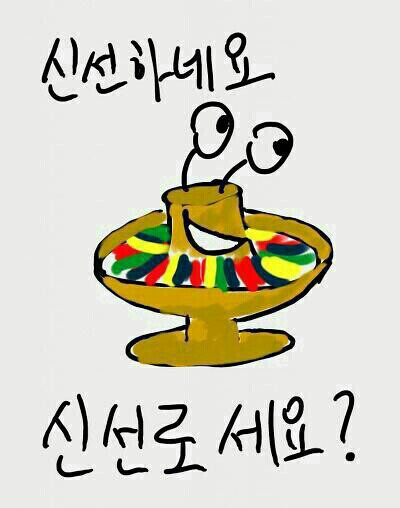 신선하네요
신선로 세요?